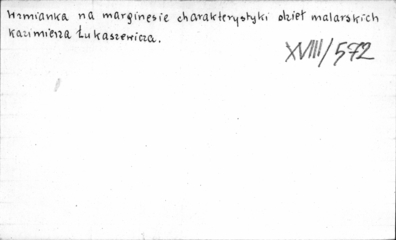 Wzmianka na marginesie charakterystyki dzieł malarskich
Kazimierza Łukaszewicza.
XVIII/572